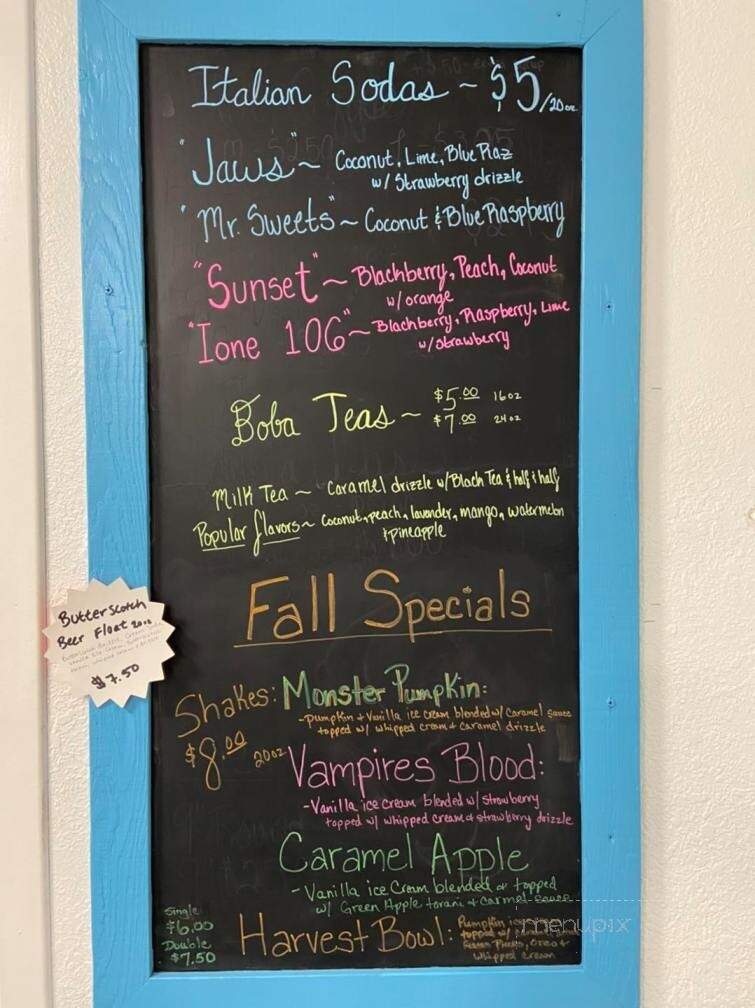 Italian Sodas ~ $5/20oz
"Jaws" ~ Coconut, Lime, Blue Raz
w/ Strawberry drizzle
"Mr. Sweets" ~ Coconut & Blue Raspberry
"Sunset" ~ Blackberry, Peach, Coconut
w/ orange
"Ione 106" ~ Blackberry, Raspberry, Lime
w/ strawberry
Boba Teas ~ $5.00 16oz
$7.00 24oz
Milk Tea ~ Caramel drizzle w/ Black Tea & half & half
Popular flavors ~ Coconut, peach, lavender, mango, watermelon
& pineapple
Fall Specials
Butterscotch
Beer Float 20oz
$7.50
Shakes: Monster Pumpkin:
$8.00 20oz
- Pumpkin + Vanilla ice cream blended w/ Caramel sauce
topped w/ whipped cream + caramel drizzle
Vampires Blood:
- Vanilla ice cream blended w/ strawberry
topped w/ whipped cream & strawberry drizzle
Caramel Apple
- Vanilla ice Cream blended or topped
w/ Green Apple torani + carmel sauce
Single
$6.00
Double
$7.50
Harvest Bowl: Pumpkin
topped w/
Oreo +
whipped cream
menupix